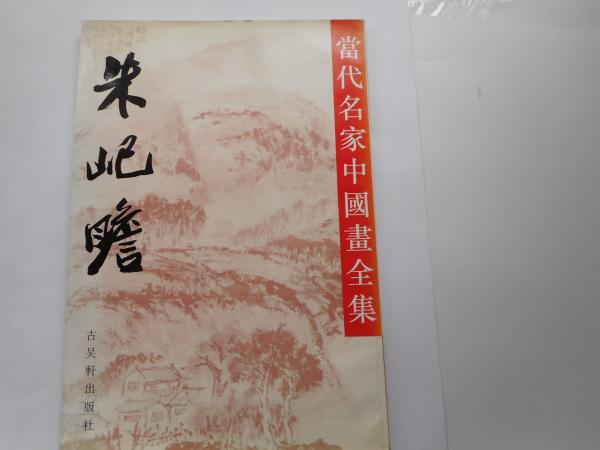 當代名家中國畫全集
朱屺瞻
古吴軒出版社